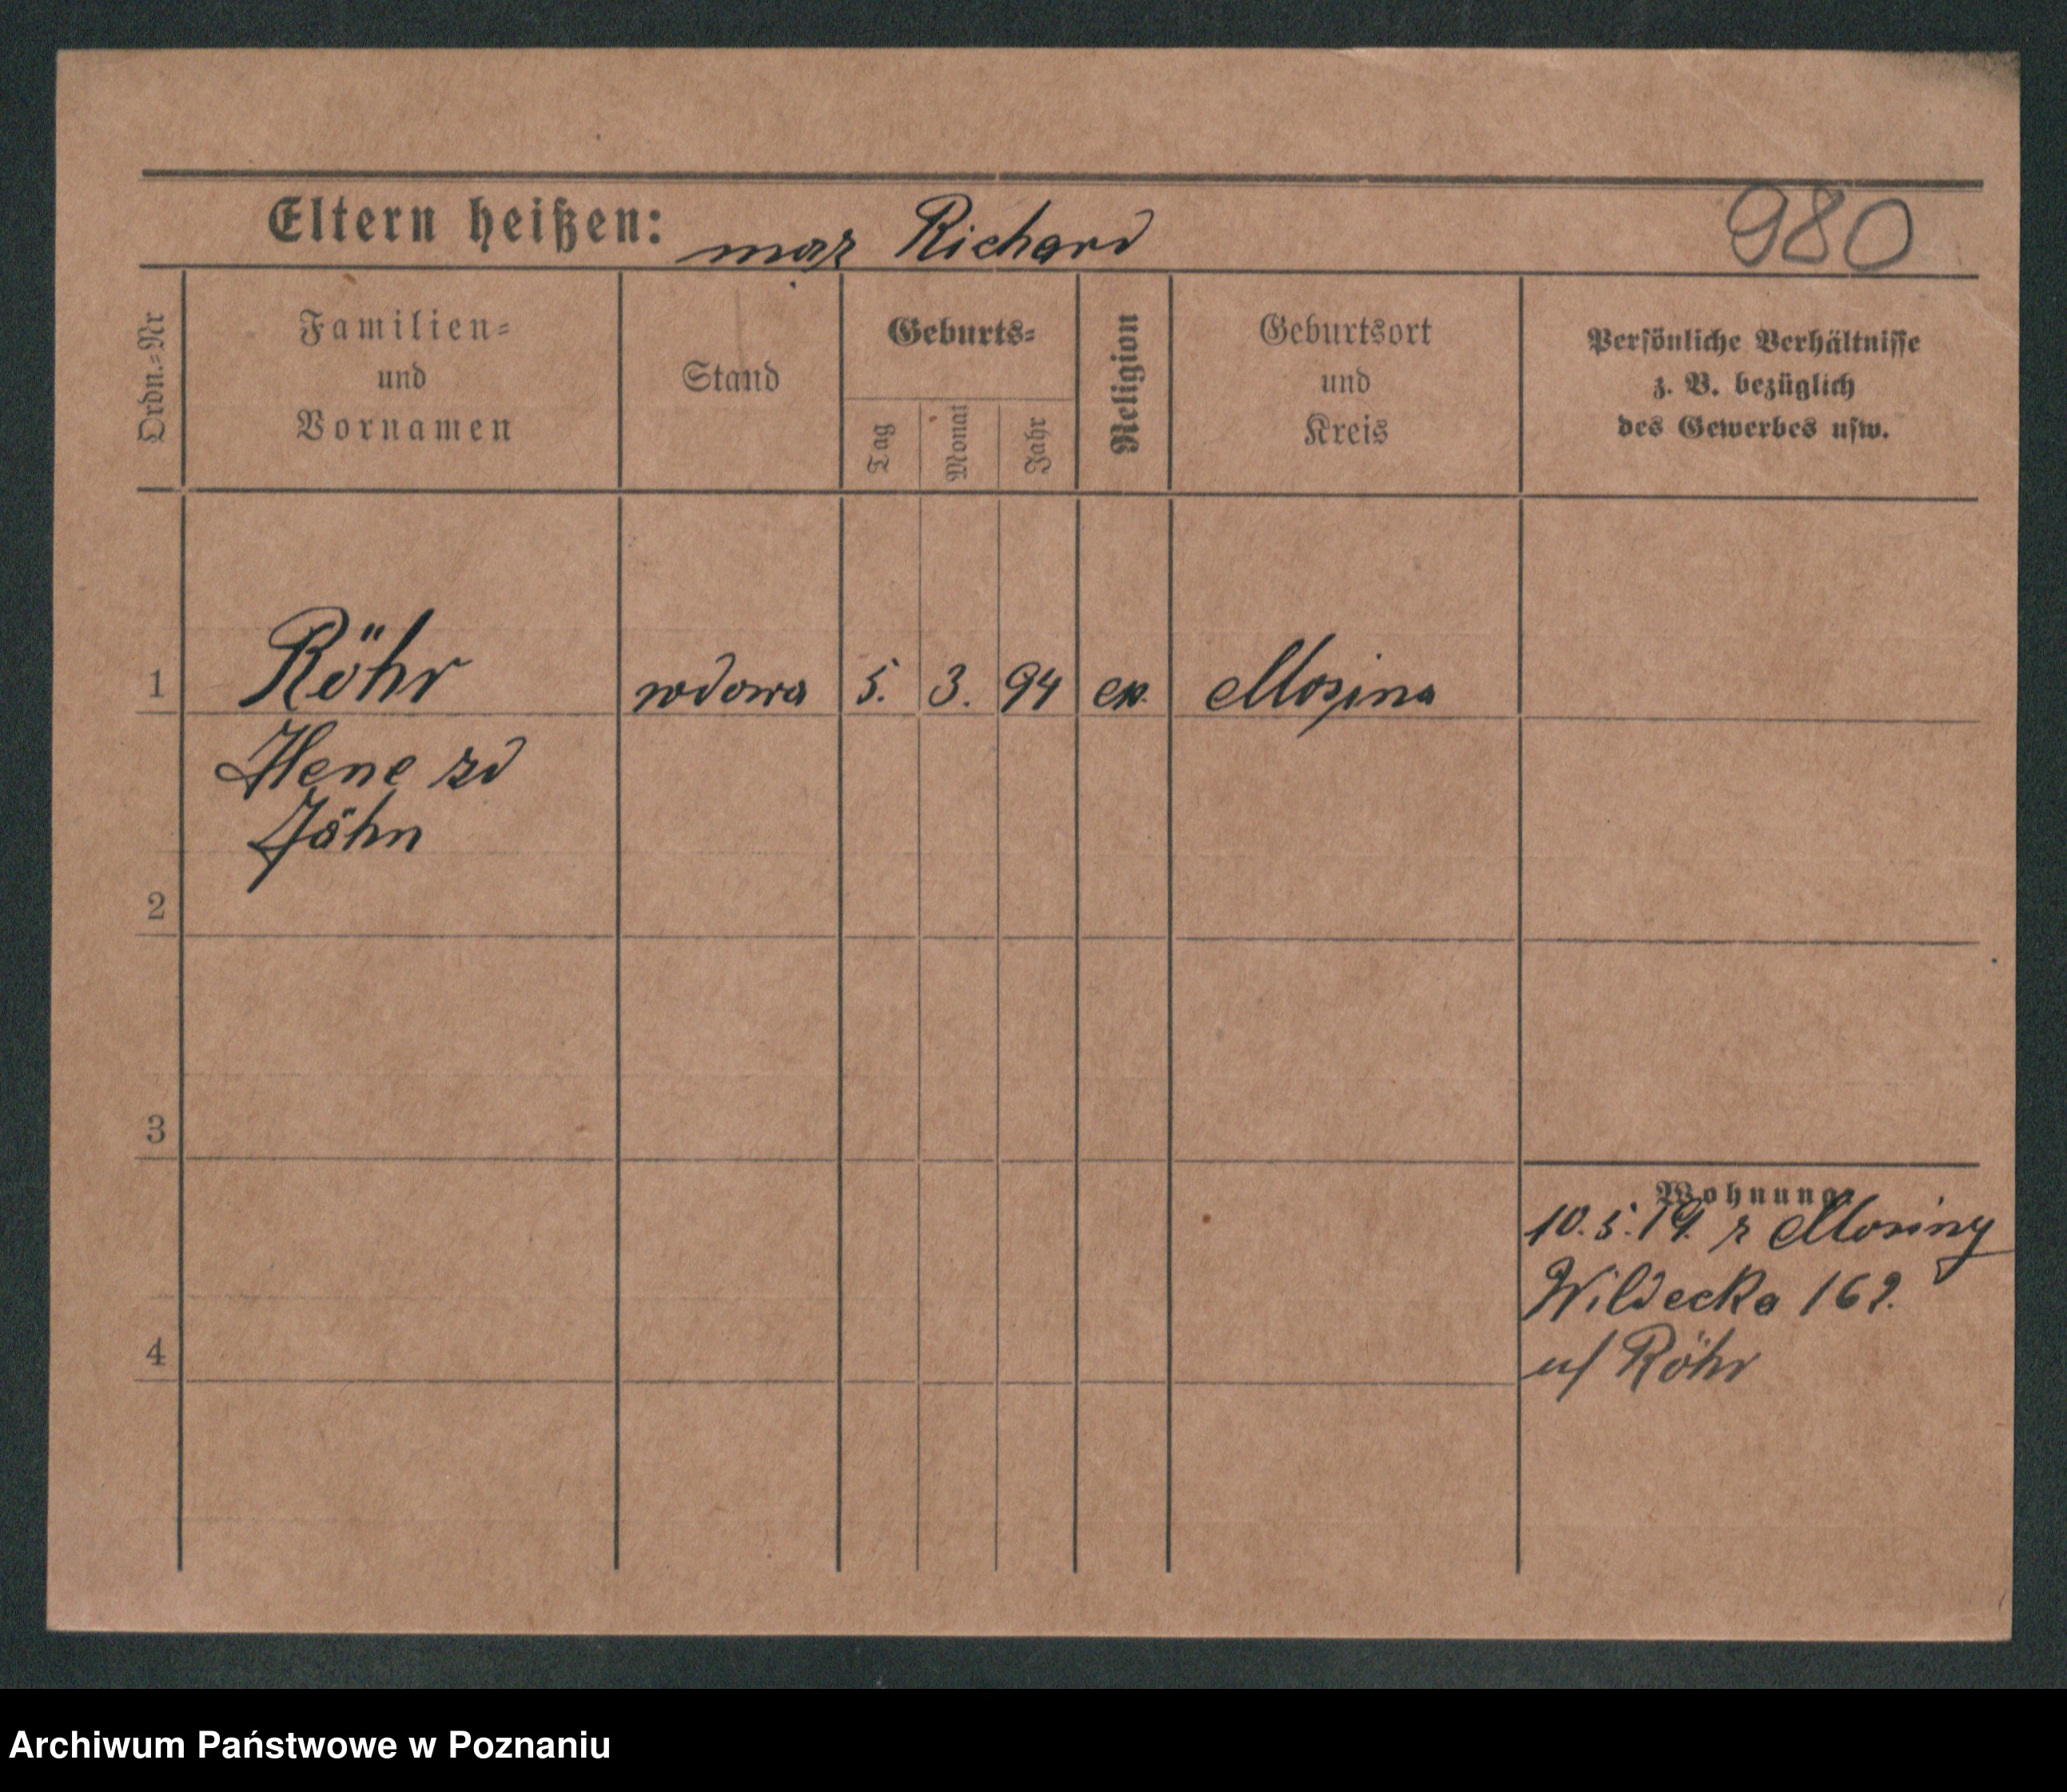 Eltern heißen: mąż Richard 980
Ordn.=Nr
Familien=
und
Vornamen
Stand
Geburts=
Tag
Monat
Jahr
Religion
Geburtsort
und
Kreis
Persönliche Verhältnisse
z. B. bezüglich
des Gewerbes usw.
1 Röhr wdowa 5. 3. 94 ew. Mosina
Ilene zd
Jähn
2
3
Wohnung
10. 5. 19. z Mosiny
Wildecka 162.
u/ Röhr
4
Archiwum Państwowe w Poznaniu